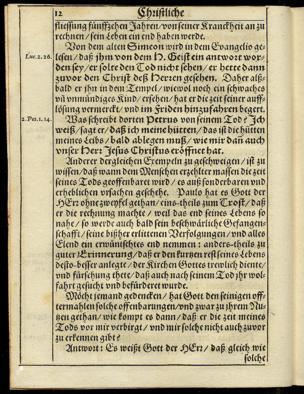 12 Christliche
fliessung fünffzehen Jahren/ von seiner Kranckheit an zu
rechnen/ sein Leben ein end haben werde.
Von dem alten Simeon wird in dem Evangelio ge-
Luc. 2. 26.
lesen/ daß ihm von dem H. Geist ein antwort wor-
den sey/ er solte den Tod nicht sehen/ er hette dann
zuvor den Christ deß Herren gesehen. Daher alß-
bald er ihn in dem Tempel/ wiewol noch ein schwaches
vñ vnmündiges Kind/ ersehen/ hat er die zeit seiner auff-
lösung vermerckt/ vnd im Frieden hinzufahren begert.
2. Pet. 1. 14.
Was schreibt dorten Petrus von seinem Tod? Ich
weiß/ sagt er/ daß ich meine hütten/ das ist die hütten
meines Leibs/ bald ablegen muß/ wie mir dañ auch
vnser Herr Jesus Christus eröffnet hat.
Anderer dergleichen Exempeln zu geschweigen/ ist zu
wissen/ daß wann dem Menschen erzehlter massen die zeit
seines Tods geoffenbaret wird/ es auß sonderbaren vnd
erheblichen vrsachen geschehe. Paulo hat es Gott der
HErr ohne zweyfel gethan/ eins-theils zum Trost/ daß
er die rechnung machte/ weil das end seines Lebens so
nahe/ so werde auch bald sein beschwärliche Gefangen-
schafft/ seine bißher erlittenen Verfolgungen/ vnd alles
Elend ein erwünschtes end nemmen: anders-theils zu
guter Erinnerung/ daß er den kurtzen rest seines Lebens
desto-besser anlegte/ der Kirchen Gottes trewlich diente/
vnd fürsehung thete/ daß auch nach seinem Tod ihr wol-
fahrt gesucht vnd befürdert wurde.
Möcht jemand gedencken/ hat Gott den seinigen off-
termahlen solche offenbarungen/ vnd zwar zu ihrem Nu-
tzen gethan/ wie kompt es dann/ daß er die zeit meines
Tods vor mir verbirgt/ vnd mir solche nicht auch zuvor
zu erkennen gibt?
Antwort: Es weißt Gott der HErr/ daß gleich wie
solche